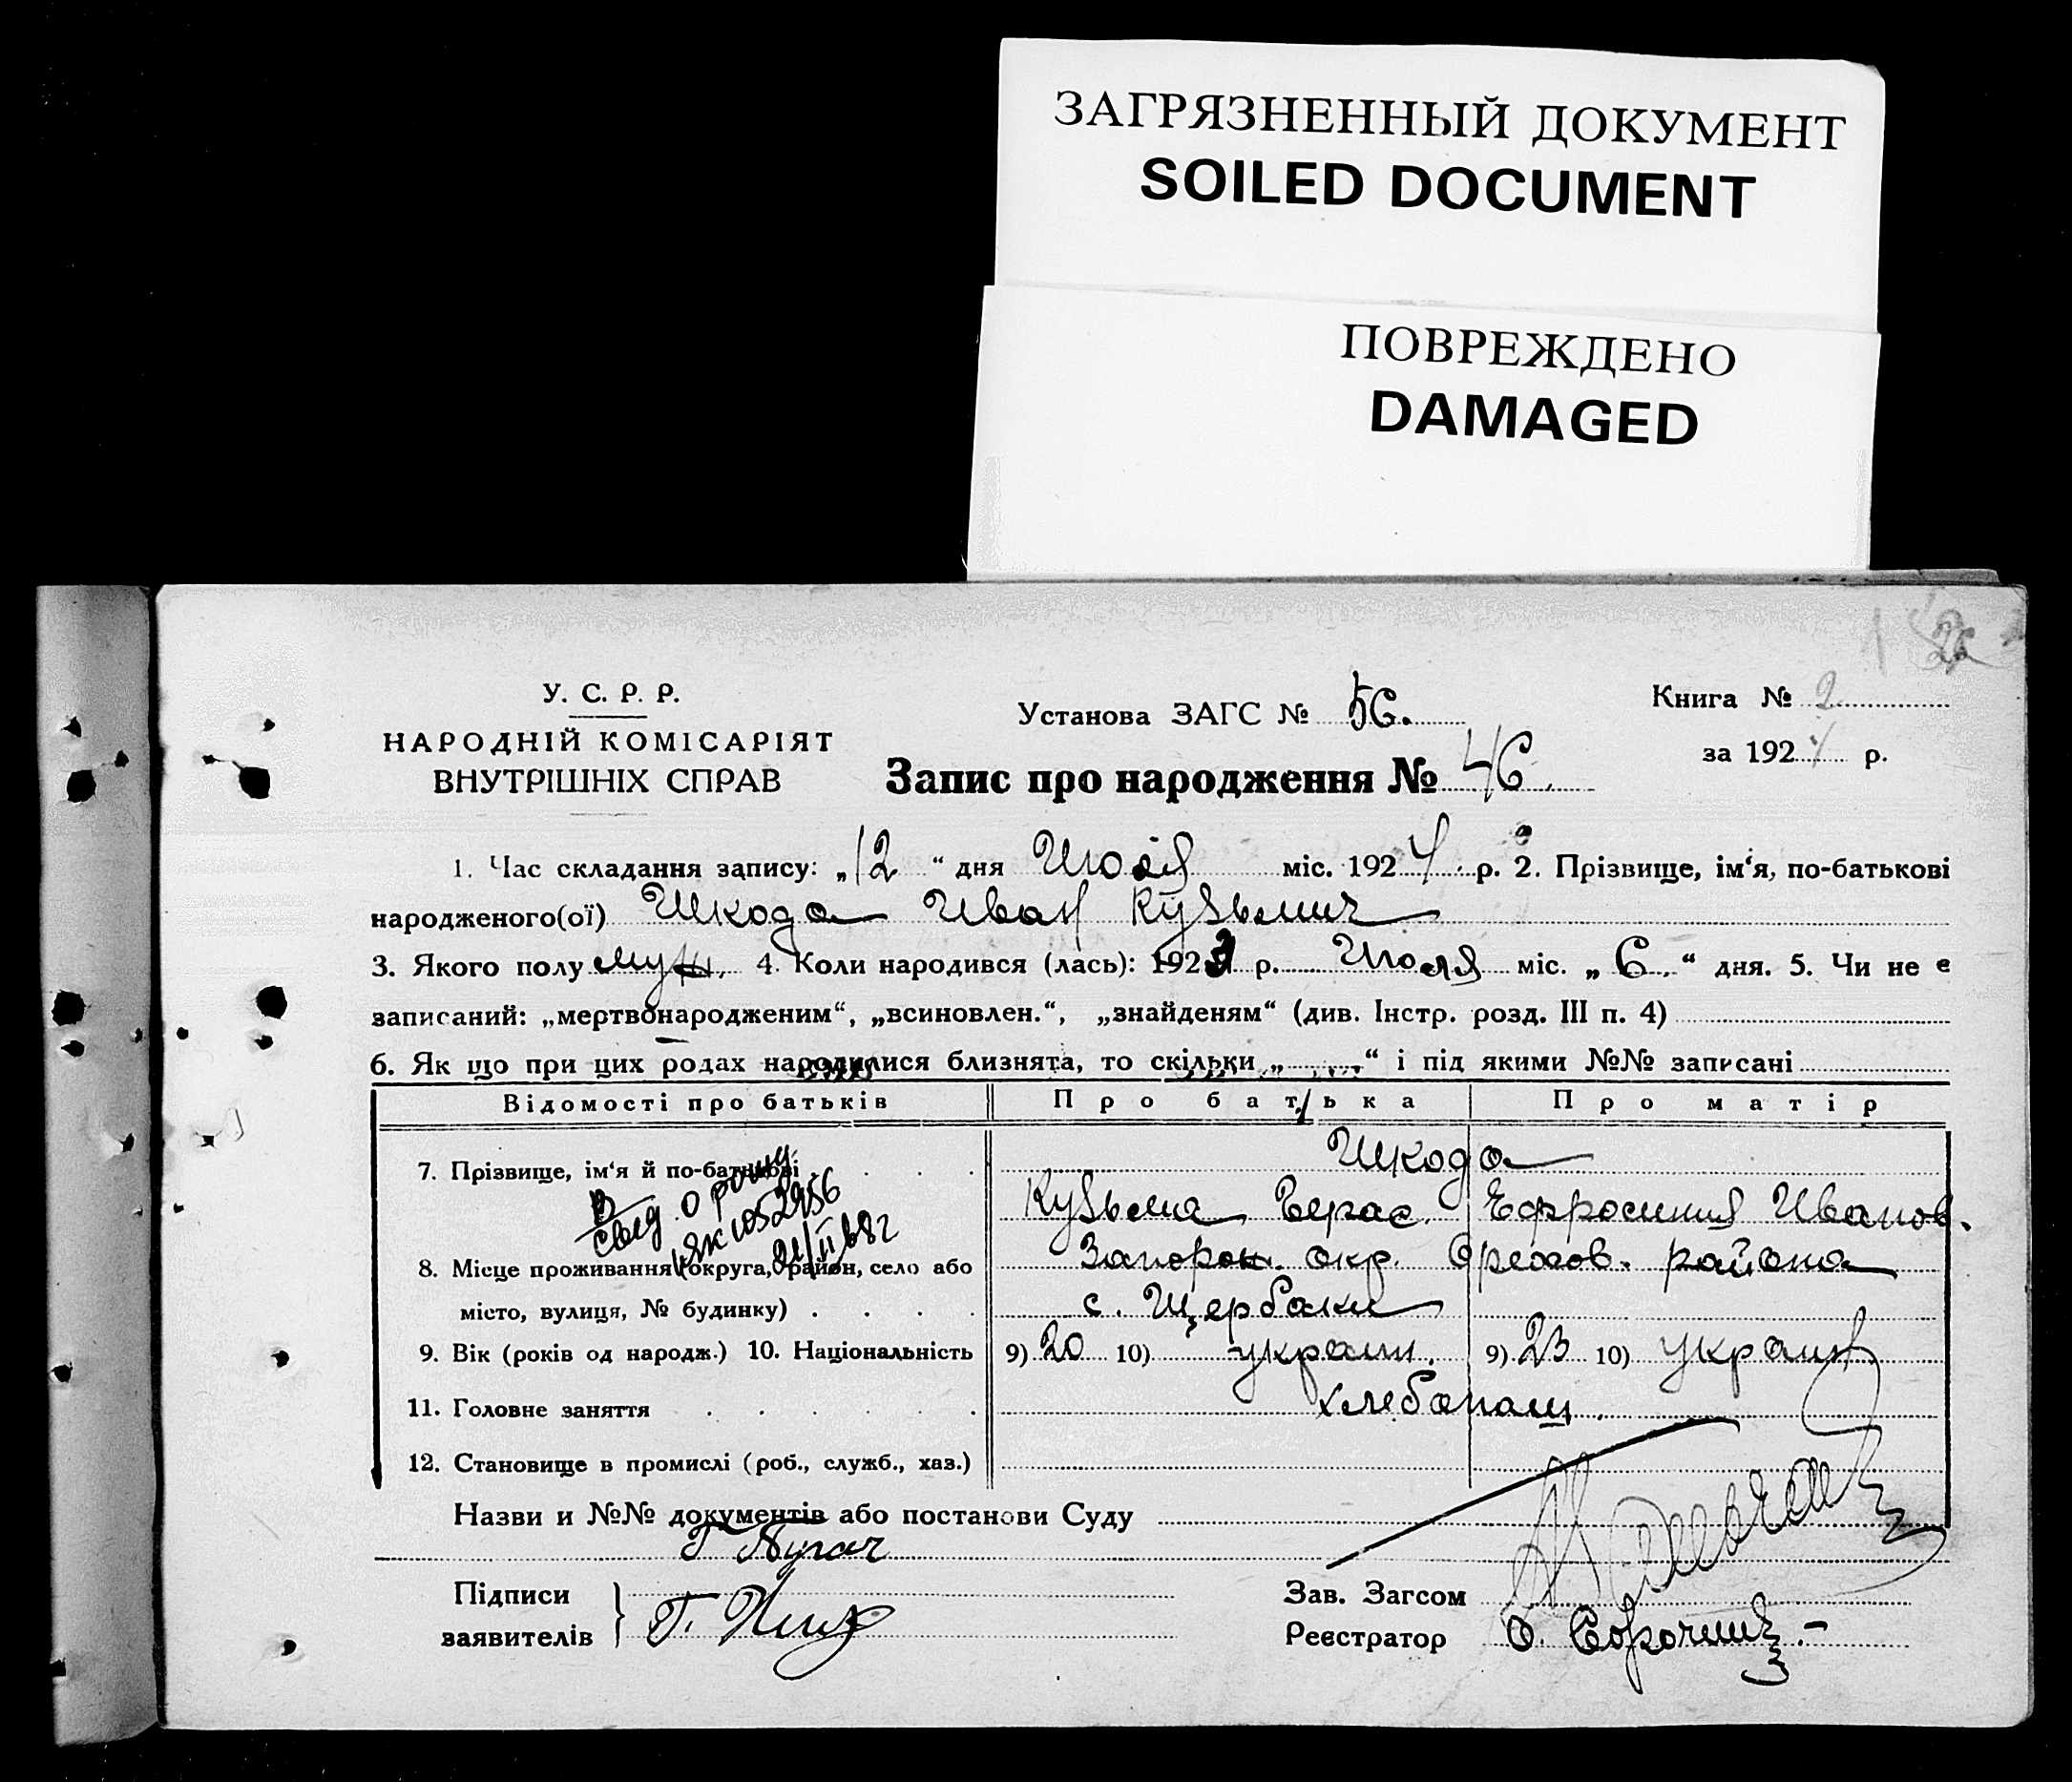 ЗАГРЯЗНЕННЫЙ ДОКУМЕНТ
SOILED DOCUMENT
ПОВРЕЖДЕНО
DAMAGED
У. С. Р. Р.
НАРОДНІЙ КОМІСАРІЯТ
ВНУТРІШНІХ СПРАВ
Установа ЗАГС № 56.
Книга № 2
за 1924 р.
Запис про народження № 46.
1. Час складання запису: „12“ дня Июля міс. 1924 р. 2. Прізвище, ім‘я, по-батькові
народженого(ої) Шкода Иван Кузьмич
3. Якого полу муж. 4. Коли народився (лась): 192 р. Июля міс. „6“ дня. 5. Чи не є
записаний: „мертвонародженим“, „всиновлен.“, „знайденям“ (див. Інстр. розд. III п. 4)
6. Як що при цих родах народилися близнята, то скільки „ “ і під якими №№ записані
Відомості про батьків Про батька Про матір
7. Прізвище, ім‘я й по-батькові Шкода
Кузьма Герас. Ефросиния Иванов.
В свид. о рожд.
ЯК 1052956
21/II 68г
8. Місце проживання (округа, район, село або Запорож. окр. Орехов. района
місто, вулиця, № будинку) с. Щербаки
9. Вік (років од народж.) 10. Національність 9) 20 10) украин. 9) 23 10) украин
11. Головне заняття хлебопаш.
12. Становище в промислі (роб., служб., хаз.)
Назви и №№ документів або постанови Суду
Г. Пугач
Підписи
заявителів
Зав. Загсом
Реєстратор